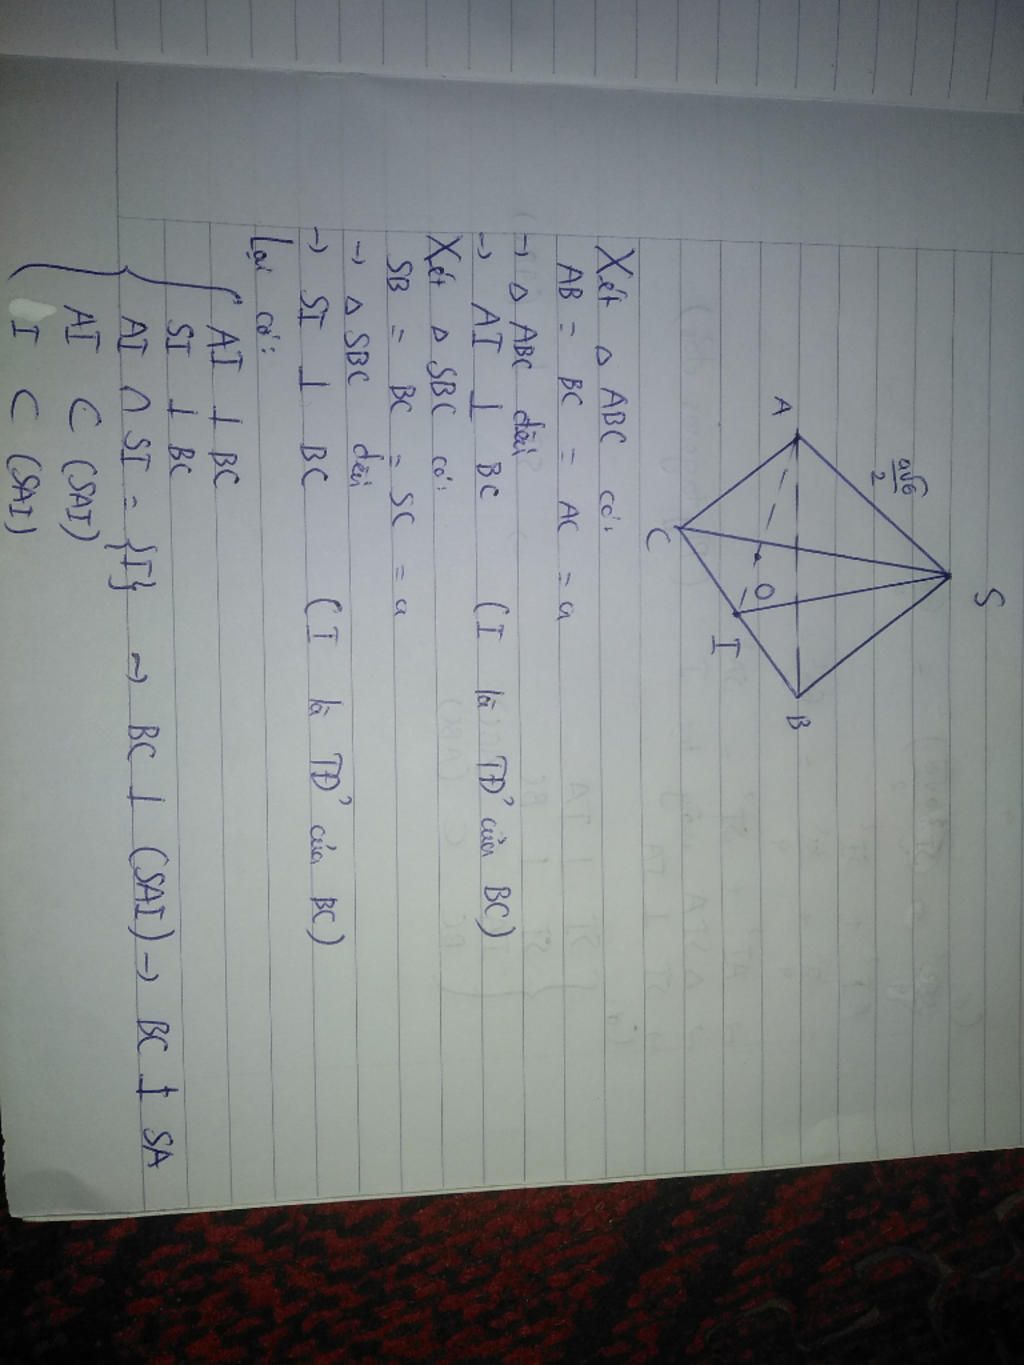 S
a√6/2
A
B
O
I
C
Xét △ ABC có:
AB = BC = AC = a
→ △ ABC đều
→ AI ⊥ BC (I là TĐ' của BC)
Xét △ SBC có:
SB = BC = SC = a
→ △ SBC đều
→ SI ⊥ BC (I là TĐ' của BC)
Lại có:
AI ⊥ BC
SI ⊥ BC
AI ∩ SI = {I} → BC ⊥ (SAI) → BC ⊥ SA
AI ⊂ (SAI)
I ⊂ (SAI)